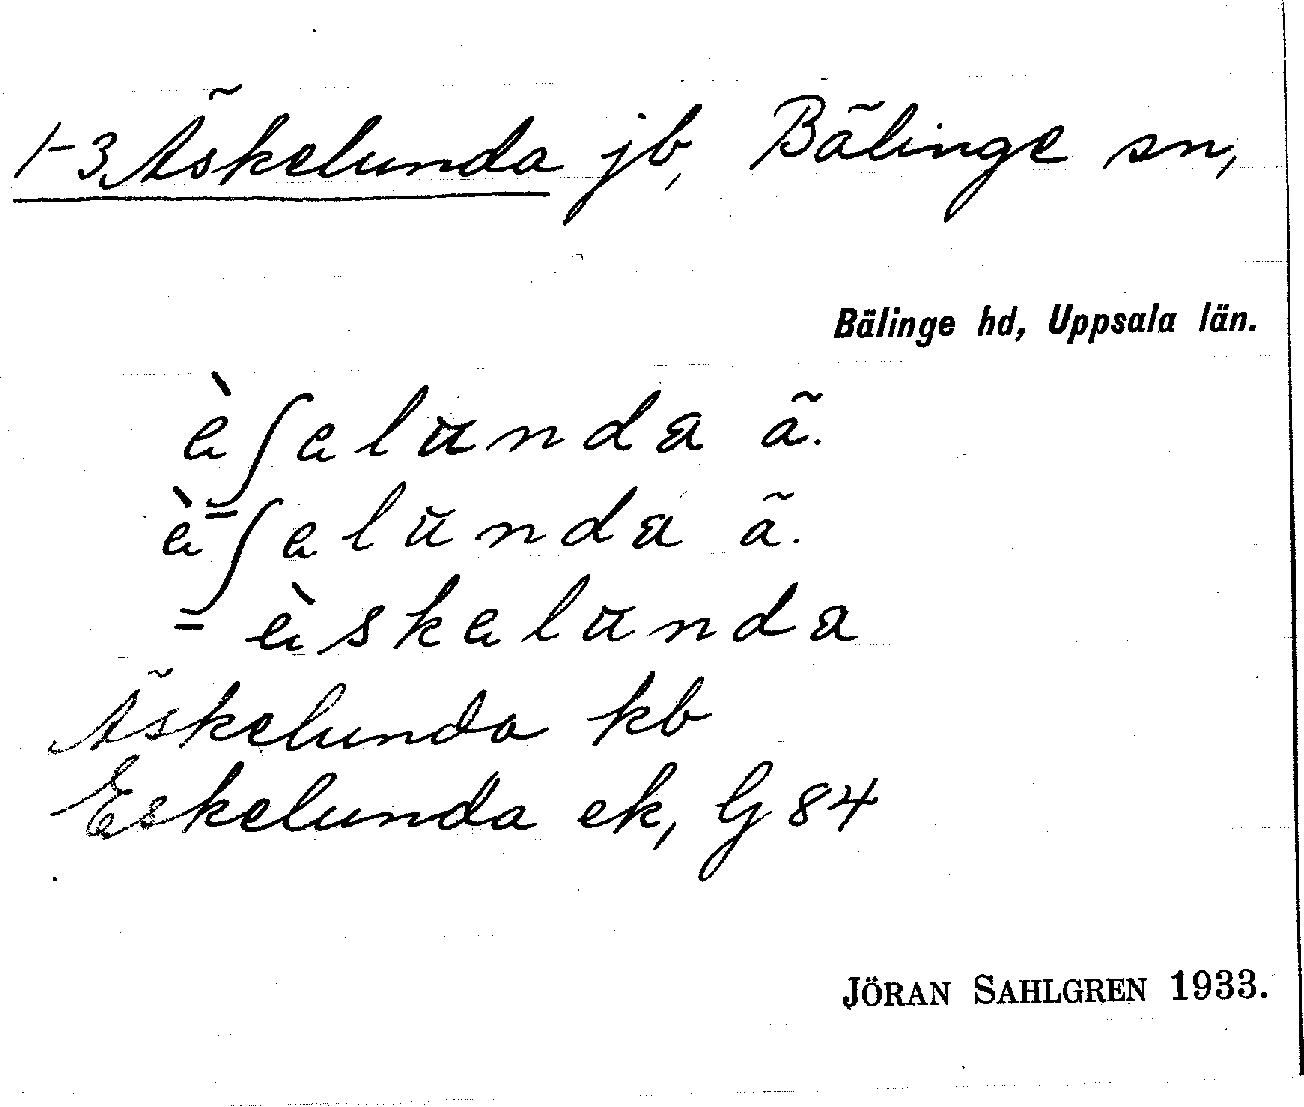 1-3 Äskelunda jb, Bälinge sn,
Bälinge hd, Uppsala län.
ὲʃelunda ã.
ὲʃelunda ã.
= ὲskelunda
Äskelunda kb
Eskelunda ek, G 84
JÖRAN SAHLGREN 1933.